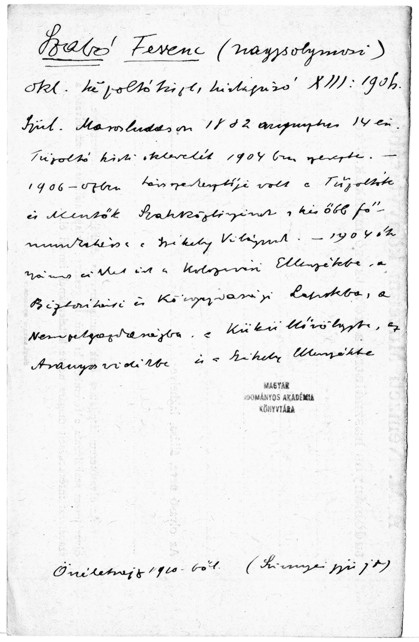 Szabó Ferenc (nagysolymosi)
okl. tűzoltótiszt, hírlapíró XIII: 1906.
Szül. Marosludason 1882 augusztus 14 én.
Tűzoltó tiszti oklevelét 1904 ben nyerte. —
1906–07ben társszerkesztője volt a Tűzoltók
és Mentők Szakközlönyének s később fő-
munkatársa a Székely Világnak. — 1904 óta
számos cikket írt a Kolozsvári Ellenzékbe, a
Biztosítási és Közgazdasági Lapokba, a
Nemzetgazdaságba, a Küküllővölgybe, az
Aranyosvidékbe és a Székely Ellenzékbe
MAGYAR
TUDOMÁNYOS AKADÉMIA
KÖNYVTÁRA
Önéletrajz 1910-ből. (Szinnyei gyűjt)